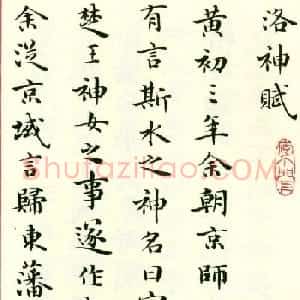 洛神賦
黃初三年余朝京師
有言斯水之神名曰宓
楚王神女之事遂作
余從京域言歸東藩
shufaziliao.com